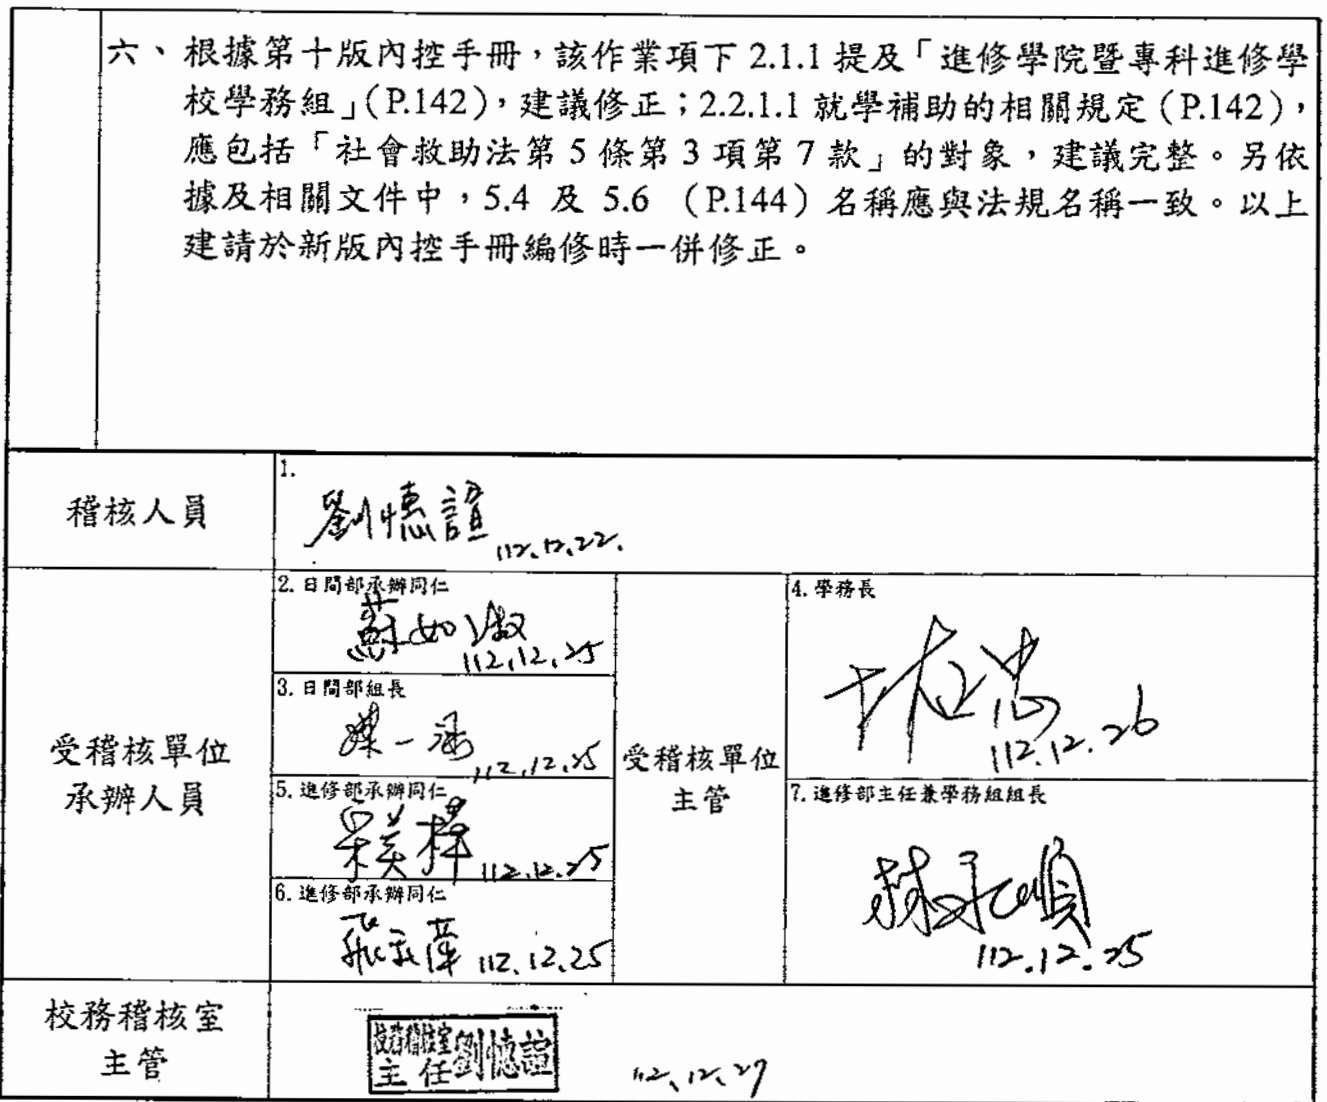 六、根據第十版內控手冊，該作業項下 2.1.1 提及「進修學院暨專科進修學
校學務組」（P.142），建議修正；2.2.1.1 就學補助的相關規定（P.142），
應包括「社會救助法第 5 條第 3 項第 7 款」的對象，建議完整。另依
據及相關文件中，5.4 及 5.6 （P.144）名稱應與法規名稱一致。以上
建請於新版內控手冊編修時一併修正。
稽核人員
1.
劉憓諠 112.12.22.
受稽核單位
承辦人員
2. 日間部承辦同仁
蘇如淑
112.12.25
3. 日間部組長
112.12.25
5. 進修部承辦同仁
112.12.25
6. 進修部承辦同仁
112.12.25
受稽核單位
主管
4. 學務長
112.12.26
7. 進修部主任兼學務組組長
林永順
112.12.25
校務稽核室
主管
校務稽核室
主任 劉憓諠
112.12.27